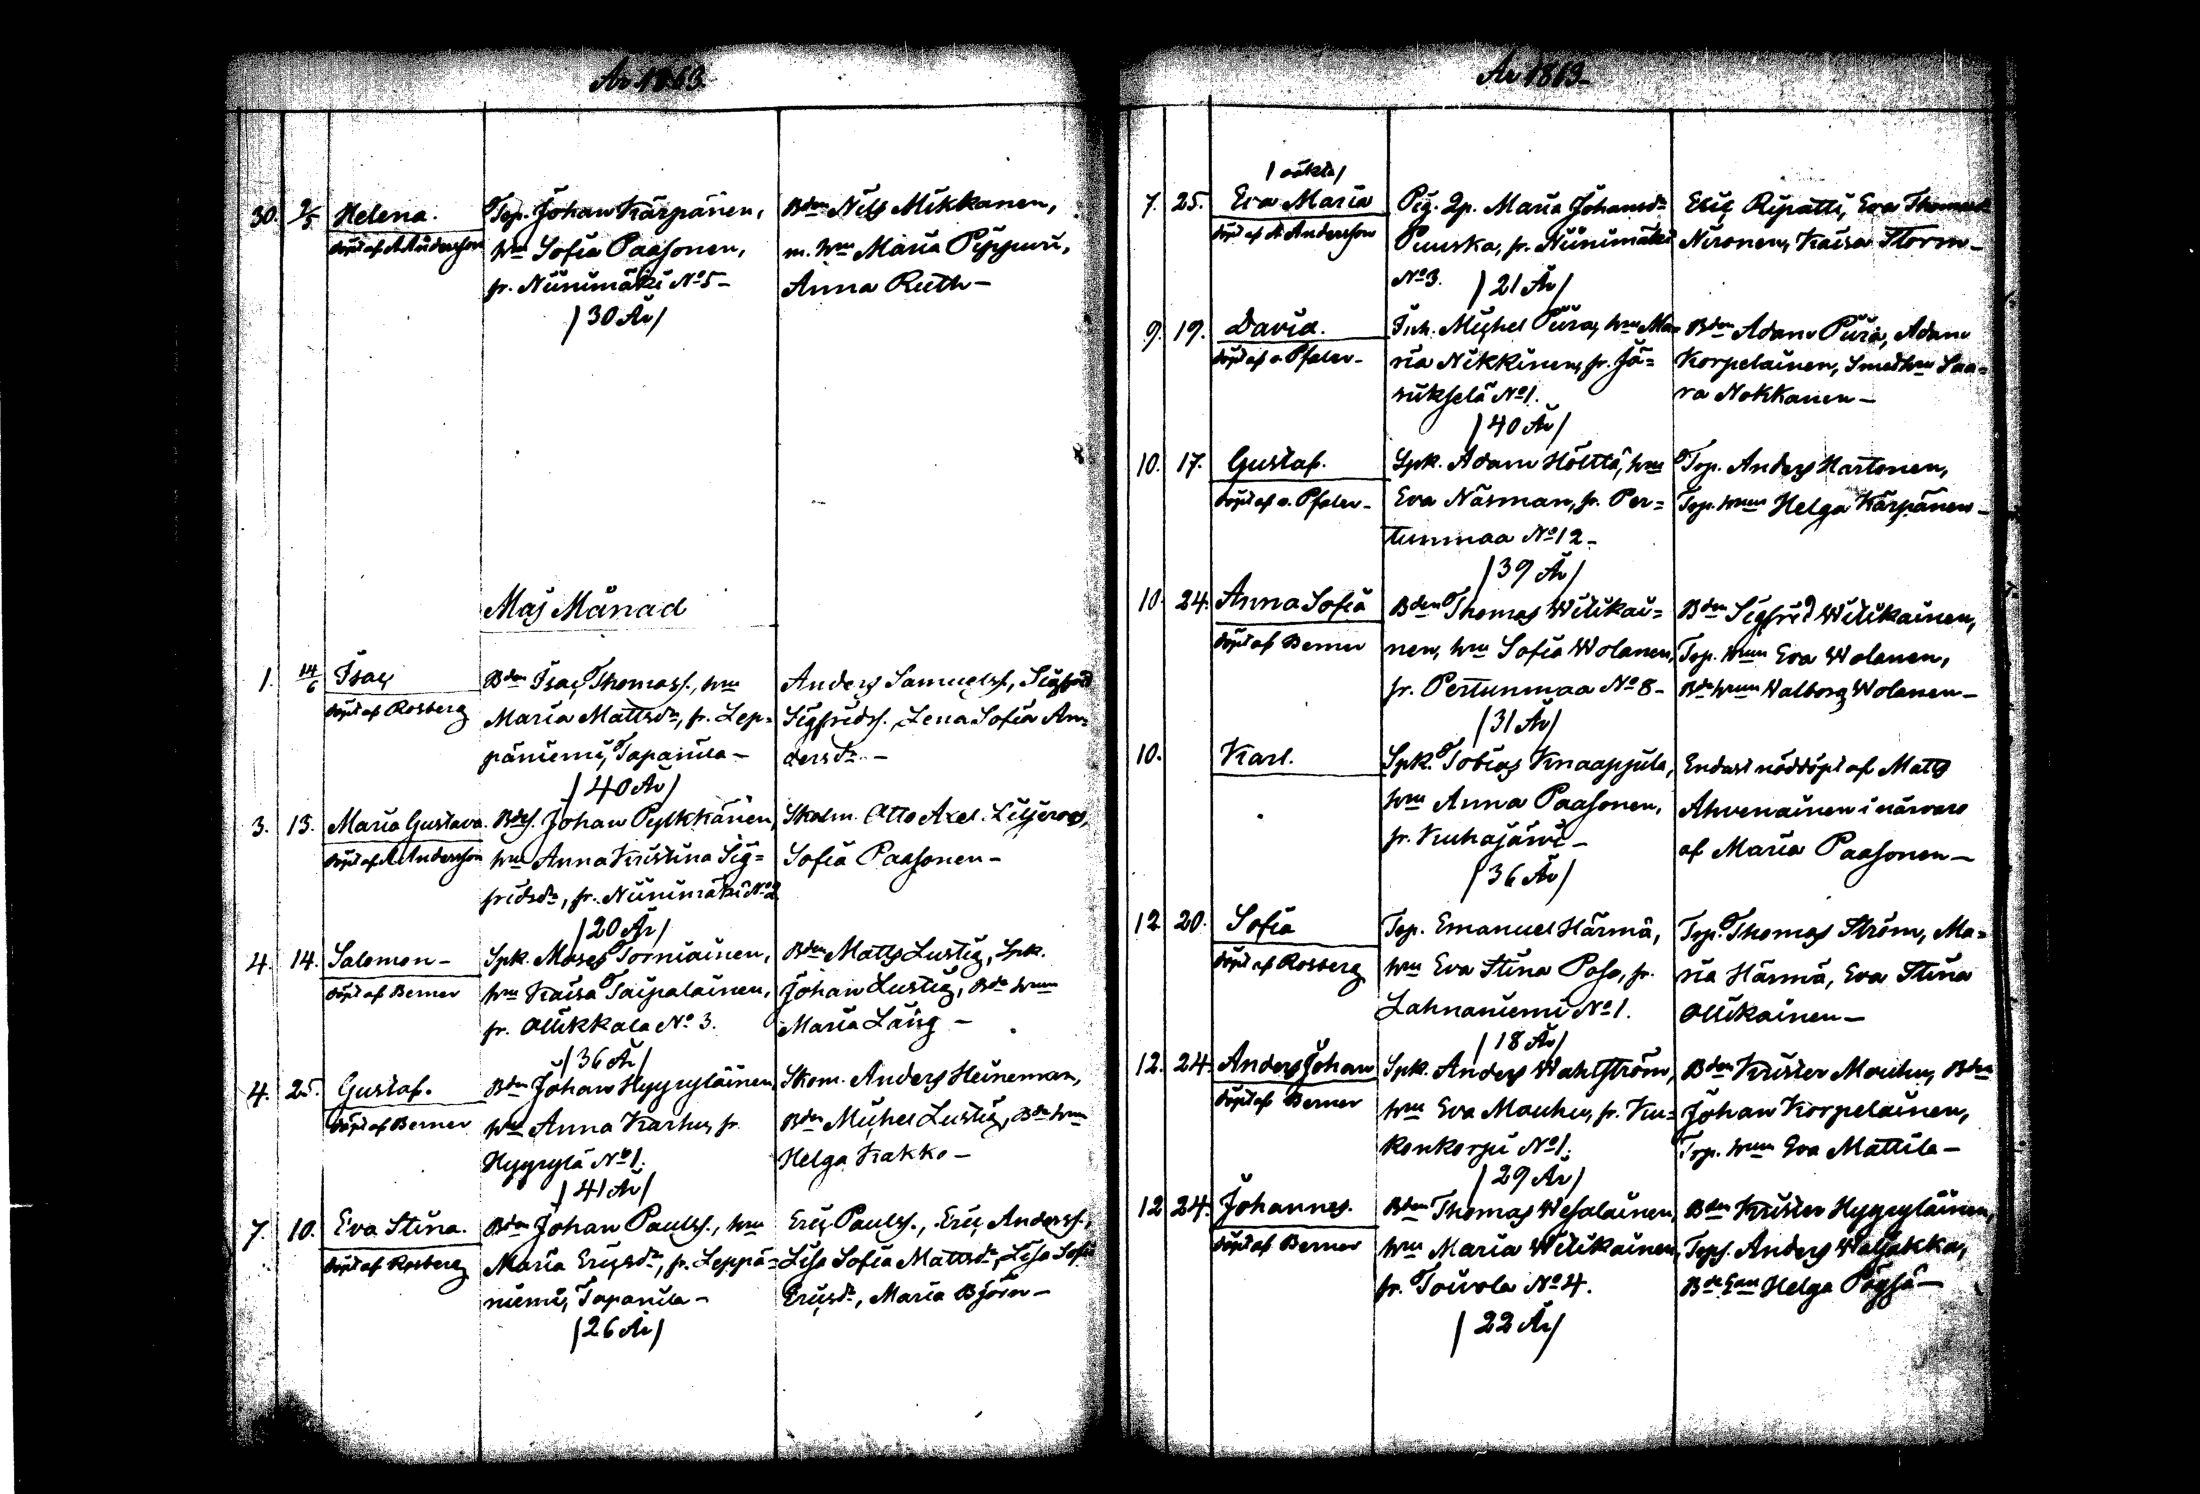 År 1813
30. 9/5 Helena.
döpt af A. Andersson
Torp. Johan Kärpänen,
hm Sofia Paasonen,
fr. Niinimäki No 5 –
/30 År/
Bden Nils Mikkanen,
m. hm Maria Pippuri,
Anna Ruth –
Maj Månad
1. 14/6 Isac
döpt af Rosberg
Bden Isac Thomass., hm
Maria Mattsdr, fr. Lep=
päniemi, Tapanila –
/40 År/
Anders Samuelss., Sigfrid
Sigfridss. Lena Sofia An=
dersdr –
3. 13. Maria Gustava.
döpt af A. Andersson
Bdes. Johan Pylkkänen,
hm Anna Kristina Sig=
fridsdr, fr. Niinimäki No 2
/20 År/
Skolm. Otto Axel Liljeroos,
Sofia Paasonen –
4. 14. Salomon –
döpt af Berner
Spk. Moses Torniainen,
hm Kaisa Taipalainen,
fr. Ollikkala No 3.
/36 År/
Bden Matts Lustig, Spk.
Johan Lustig, Bde hmm
Maria Läng –
4. 25. Gustaf.
döpt af Berner
Bden Johan Hyyryläinen,
hm Anna Karhu, fr.
Hyyrylä No 1.
/41 År/
Skom. Anders Heineman,
Bden Michel Lustig, Bde hmm
Helga Kakko –
7. 10. Eva Stina.
döpt af Rosberg
Bden Johan Paulss., hm
Maria Ericsdr, fr. Leppä=
niemi, Tapanila –
/26 År/
Eric Paulss., Eric Anderss.,
Lisa Sofia Mattsdr, Lisa Sofia
Ericsdr, Maria Björn –
År 1813
/oäkta/
7. 25. Eva Maria
döpt af A. Andersson
Pig. Qp. Maria Johansdr
Puuska, fr. Niinimäki
No 3. /21 År/
Eric Ripatti, Eva Thomasdr
Nironen, Kaisa Storm –
9. 19. David.
döpt af v. Pfaler –
Inh. Michel Piira, hm Ma=
ria Nikkinen, fr. Jä=
rukselä No 1.
/40 År/
Bden Adam Piira, Adam
Korpelainen, Smed hm Saa=
ra Nokkanen –
10. 17. Gustaf.
döpt af v. Pfaler –
Spk. Adam Hölttä, hm
Eva Näsman, fr. Per=
tunmaa No 12 –
/39 År/
Torp. Anders Hartonen,
Torp. hmm Helga Kärpänen –
10. 24. Anna Sofia
döpt af Berner
Bden Thomas Wilikai=
nen, hm Sofia Wolanen,
fr. Pertunmaa No 8 –
/31 År/
Bden Sigfrid Wilikainen,
Torp. hmm Eva Wolanen,
Bde hmm Walborg Wolanen –
10. Karl.
Spk. Tobias Knaapjula,
hm Anna Paasonen,
fr. Kuhajärvi –
/36 År/
Endast nöddöpt af Matts
Ahvenainen i närvaro
af Maria Paasonen –
12 20. Sofia
döpt af Rosberg
Torp. Emanuel Härmä,
hm Eva Stina Poso, fr.
Lahnaniemi No 1.
/18 År/
Torp. Thomas Ström, Ma=
ria Härmä, Eva Stina
Ollikainen –
12. 24. Anders Johan
döpt af Berner
Spk. Anders Wahlström,
hm Eva Mouhu, fr. Ku=
konkorpi No 1.
/29 År/
Bden Krister Mouhu, Bden
Johan Korpelainen,
Torp. hmm Eva Mattila –
12 24. Johannes.
döpt af Berner
Bden Thomas Wesalainen,
hm Maria Wilikainen,
fr. Toivola No 4.
/22 År/
Bden Krister Hyyryläinen,
Torps. Anders Waljakka,
Bde Enn Helga Pöysä –